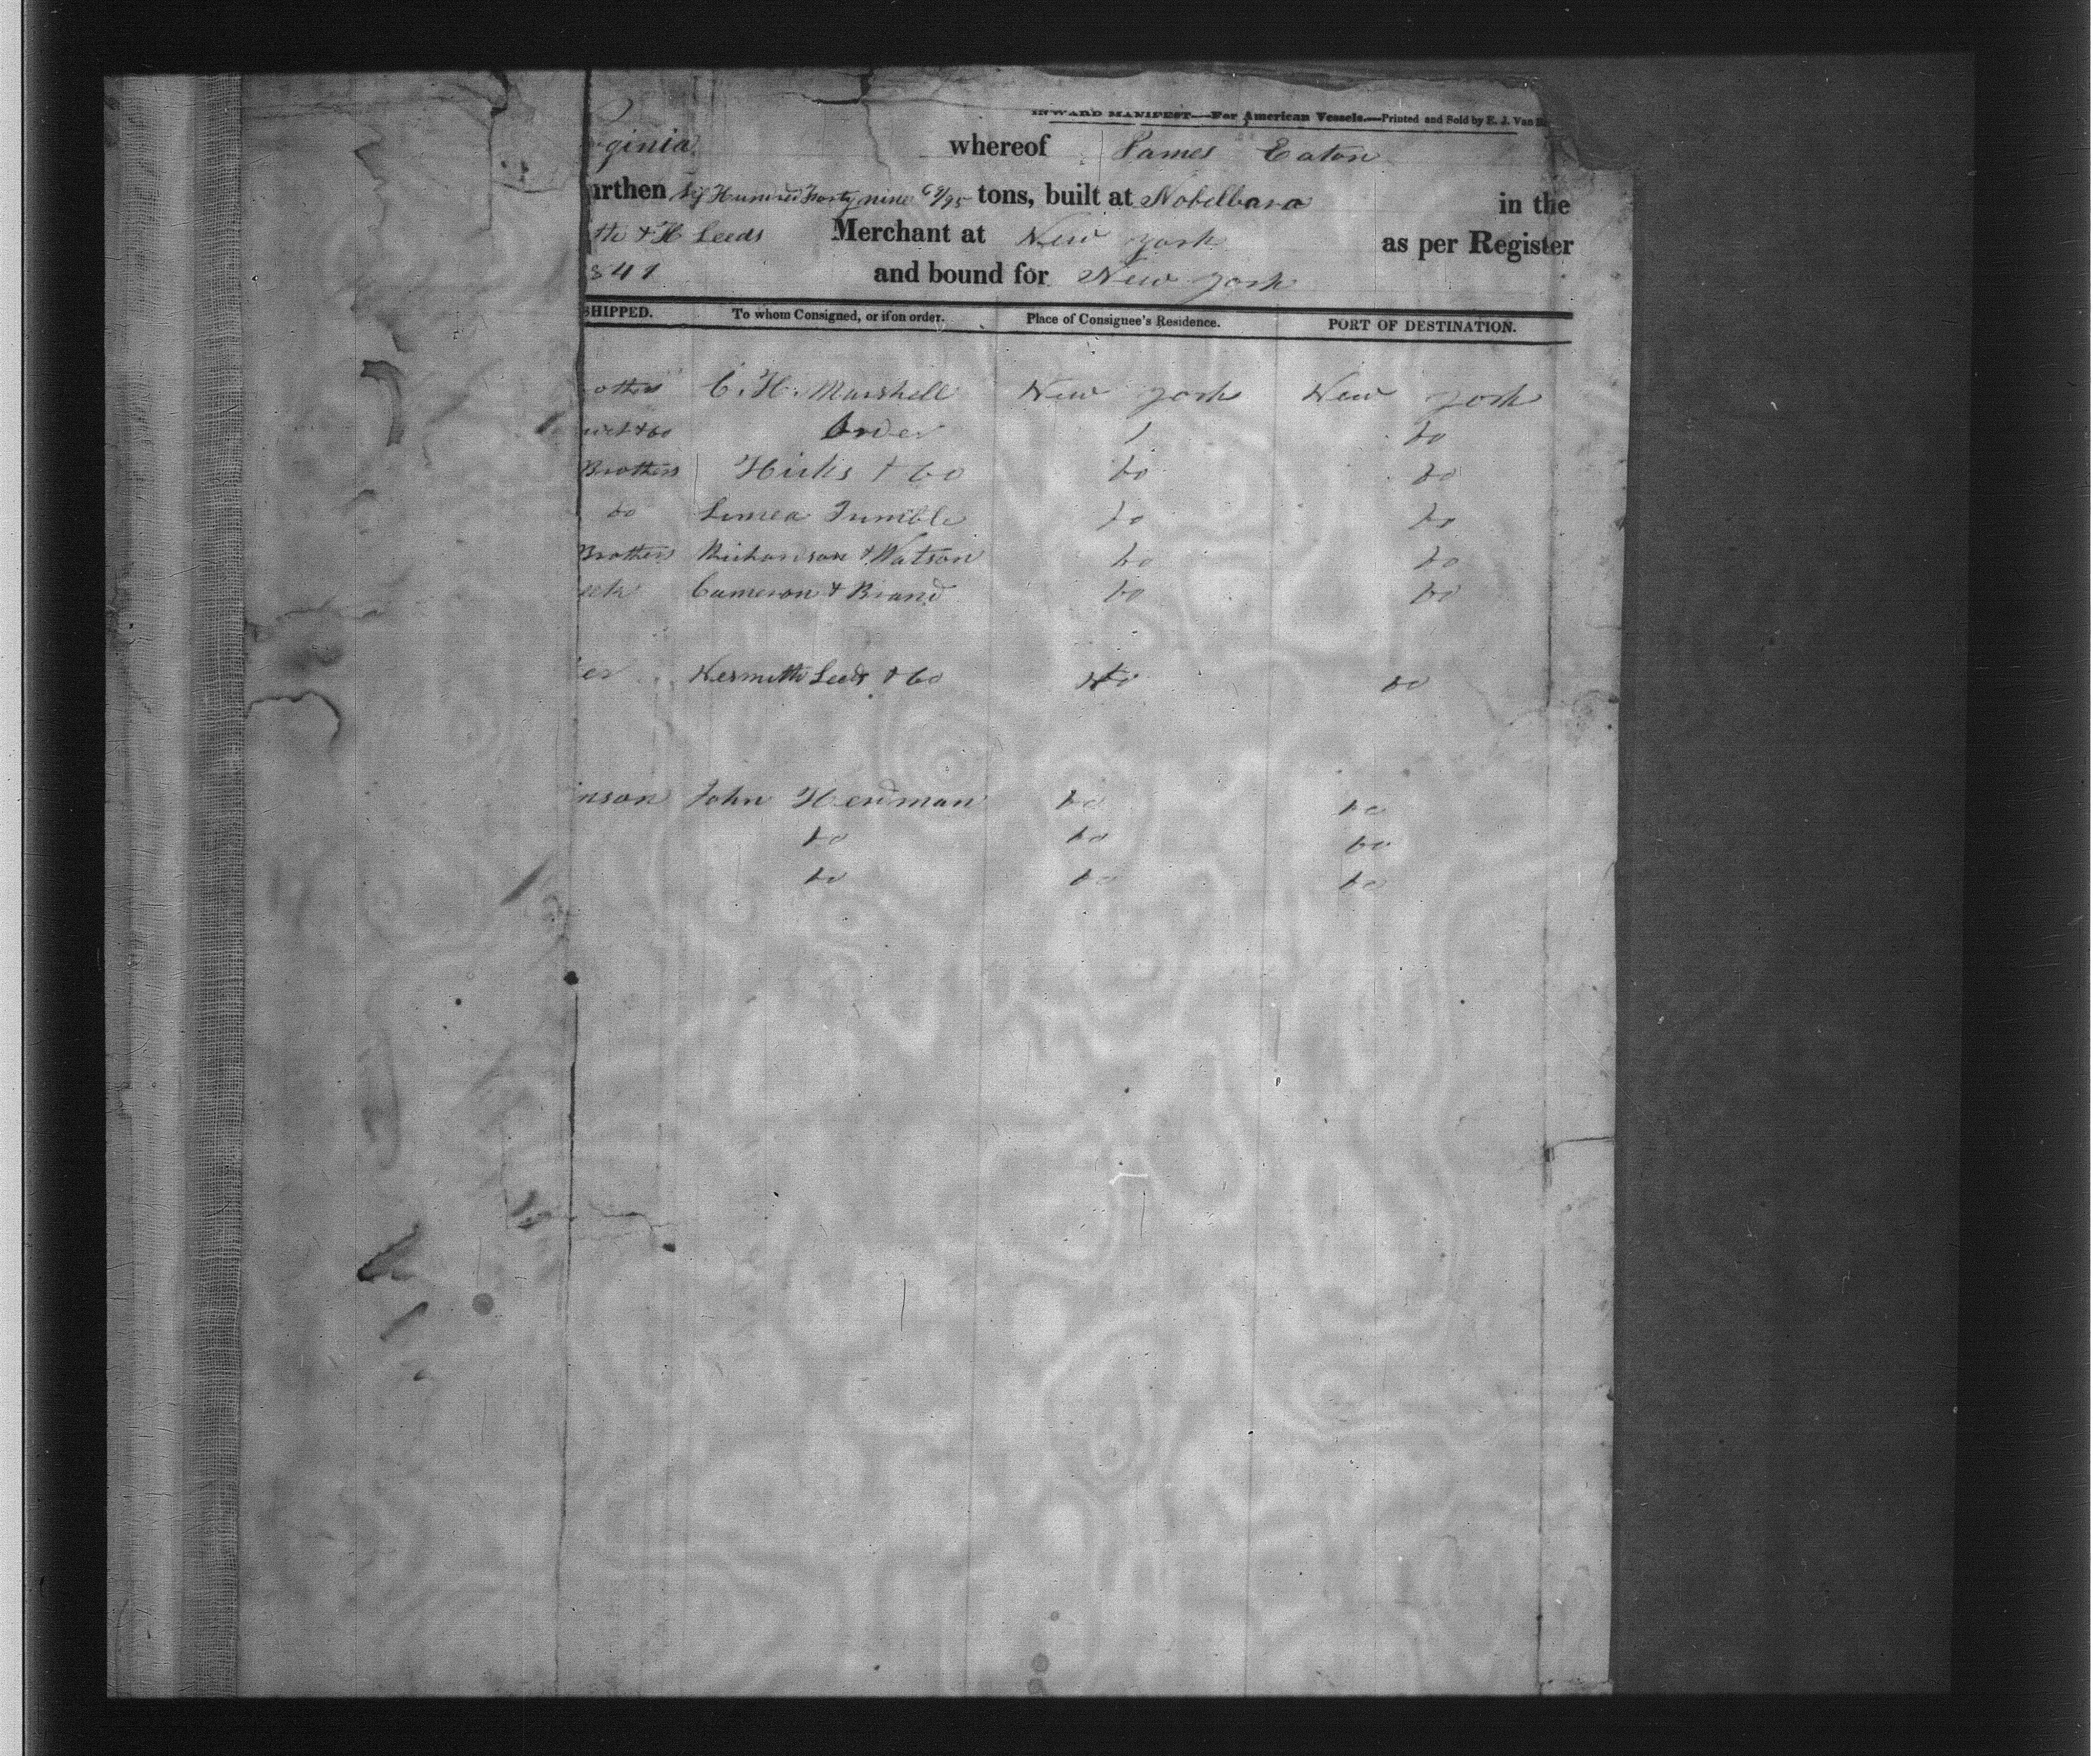 INWARD MANIFEST—For American Vessels.—Printed and Sold by E. J. Van
ginia whereof James Eaton
urthen Six Hundred Forty nine 69/95 tons, built at Nobelboro in the
th & H Leeds Merchant at New York as per Register
841 and bound for New York
SHIPPED. To whom Consigned, or if on order. Place of Consignee's Residence. PORT OF DESTINATION.
others C. H. Marshall New York New York
& Co Order do
Brothers Hicks & Co do do
do do do
Brothers Richardson & Watson do do
Cameron & Brand do do
er Nesmith Leeds & Co do do
nson John Herdman do do
do do do
do do do